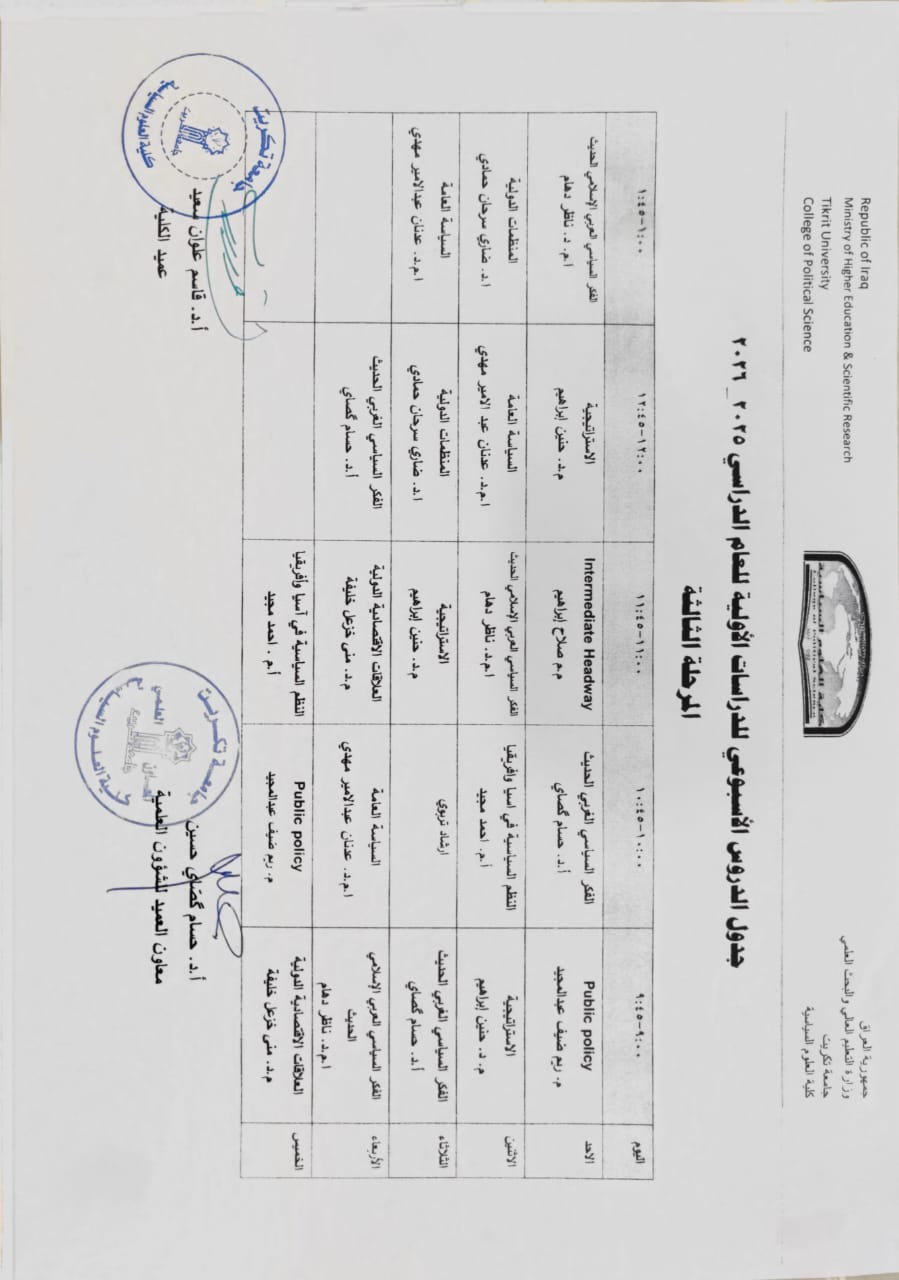 Republic of Iraq
Ministry of Higher Education & Scientific Research
Tikrit University
College of Political Science
جمهورية العراق
وزارة التعليم العالي والبحث العلمي
جامعة تكريت
كلية العلوم السياسية
كلية العلوم السياسية
College of Political Science
جدول الدروس الأسبوعي للدراسات الأولية للعام الدراسي ٢٠٢٥_٢٠٢٦
المرحلة الثالثة
اليوم
٩:٤٥-٩:٠٠
١٠:٤٥-١٠:٠٠
١١:٤٥-١١:٠٠
١٢:٤٥-١٢:٠٠
١:٤٥-١:٠٠
الاحد
Public policy
م. ريم ضيف عبدالمجيد
الفكر السياسي الغربي الحديث
أ.د. حسام گصاي
Intermediate Headway
م.م صلاح إبراهيم
الاستراتيجية
م.د. حنين إبراهيم
الفكر السياسي العربي الإسلامي الحديث
ا.م. د. ناظر دهام
الاثنين
الاستراتيجية
م. د. حنين إبراهيم
النظم السياسية في اسيا وأفريقيا
أ.م. احمد مجيد
الفكر السياسي العربي الإسلامي الحديث
ا.م.د. ناظر دهام
السياسة العامة
ا.م.د. عدنان عبد الامير مهدي
المنظمات الدولية
ا.د. ضاري سرحان حمادي
الثلاثاء
الفكر السياسي الغربي الحديث
أ.د. حسام گصاي
ارشاد تربوي
الاستراتيجية
م.د. حنين إبراهيم
المنظمات الدولية
ا.د. ضاري سرحان حمادي
السياسة العامة
ا.م.د. عدنان عبدالامير مهدي
الأربعاء
الفكر السياسي العربي الإسلامي
الحديث
ا.م.د. ناظر دهام
السياسة العامة
ا.م.د. عدنان عبدالامير مهدي
العلاقات الاقتصادية الدولية
م.د. منى خزعل خليفة
الفكر السياسي الغربي الحديث
أ.د. حسام گصاي
الخميس
العلاقات الاقتصادية الدولية
م.د. منى خزعل خليفة
Public policy
م. ريم ضيف عبدالمجيد
النظم السياسية في آسيا وأفريقيا
أ.م . احمد مجيد
أ.د. حسام گصاي حسين
معاون العميد للشؤون العلمية
أ.د. قاسم علوان سعيد
عميد الكلية
جامعة تكريت
كلية العلوم السياسية
جامعة تكريت
كلية العلوم السياسية